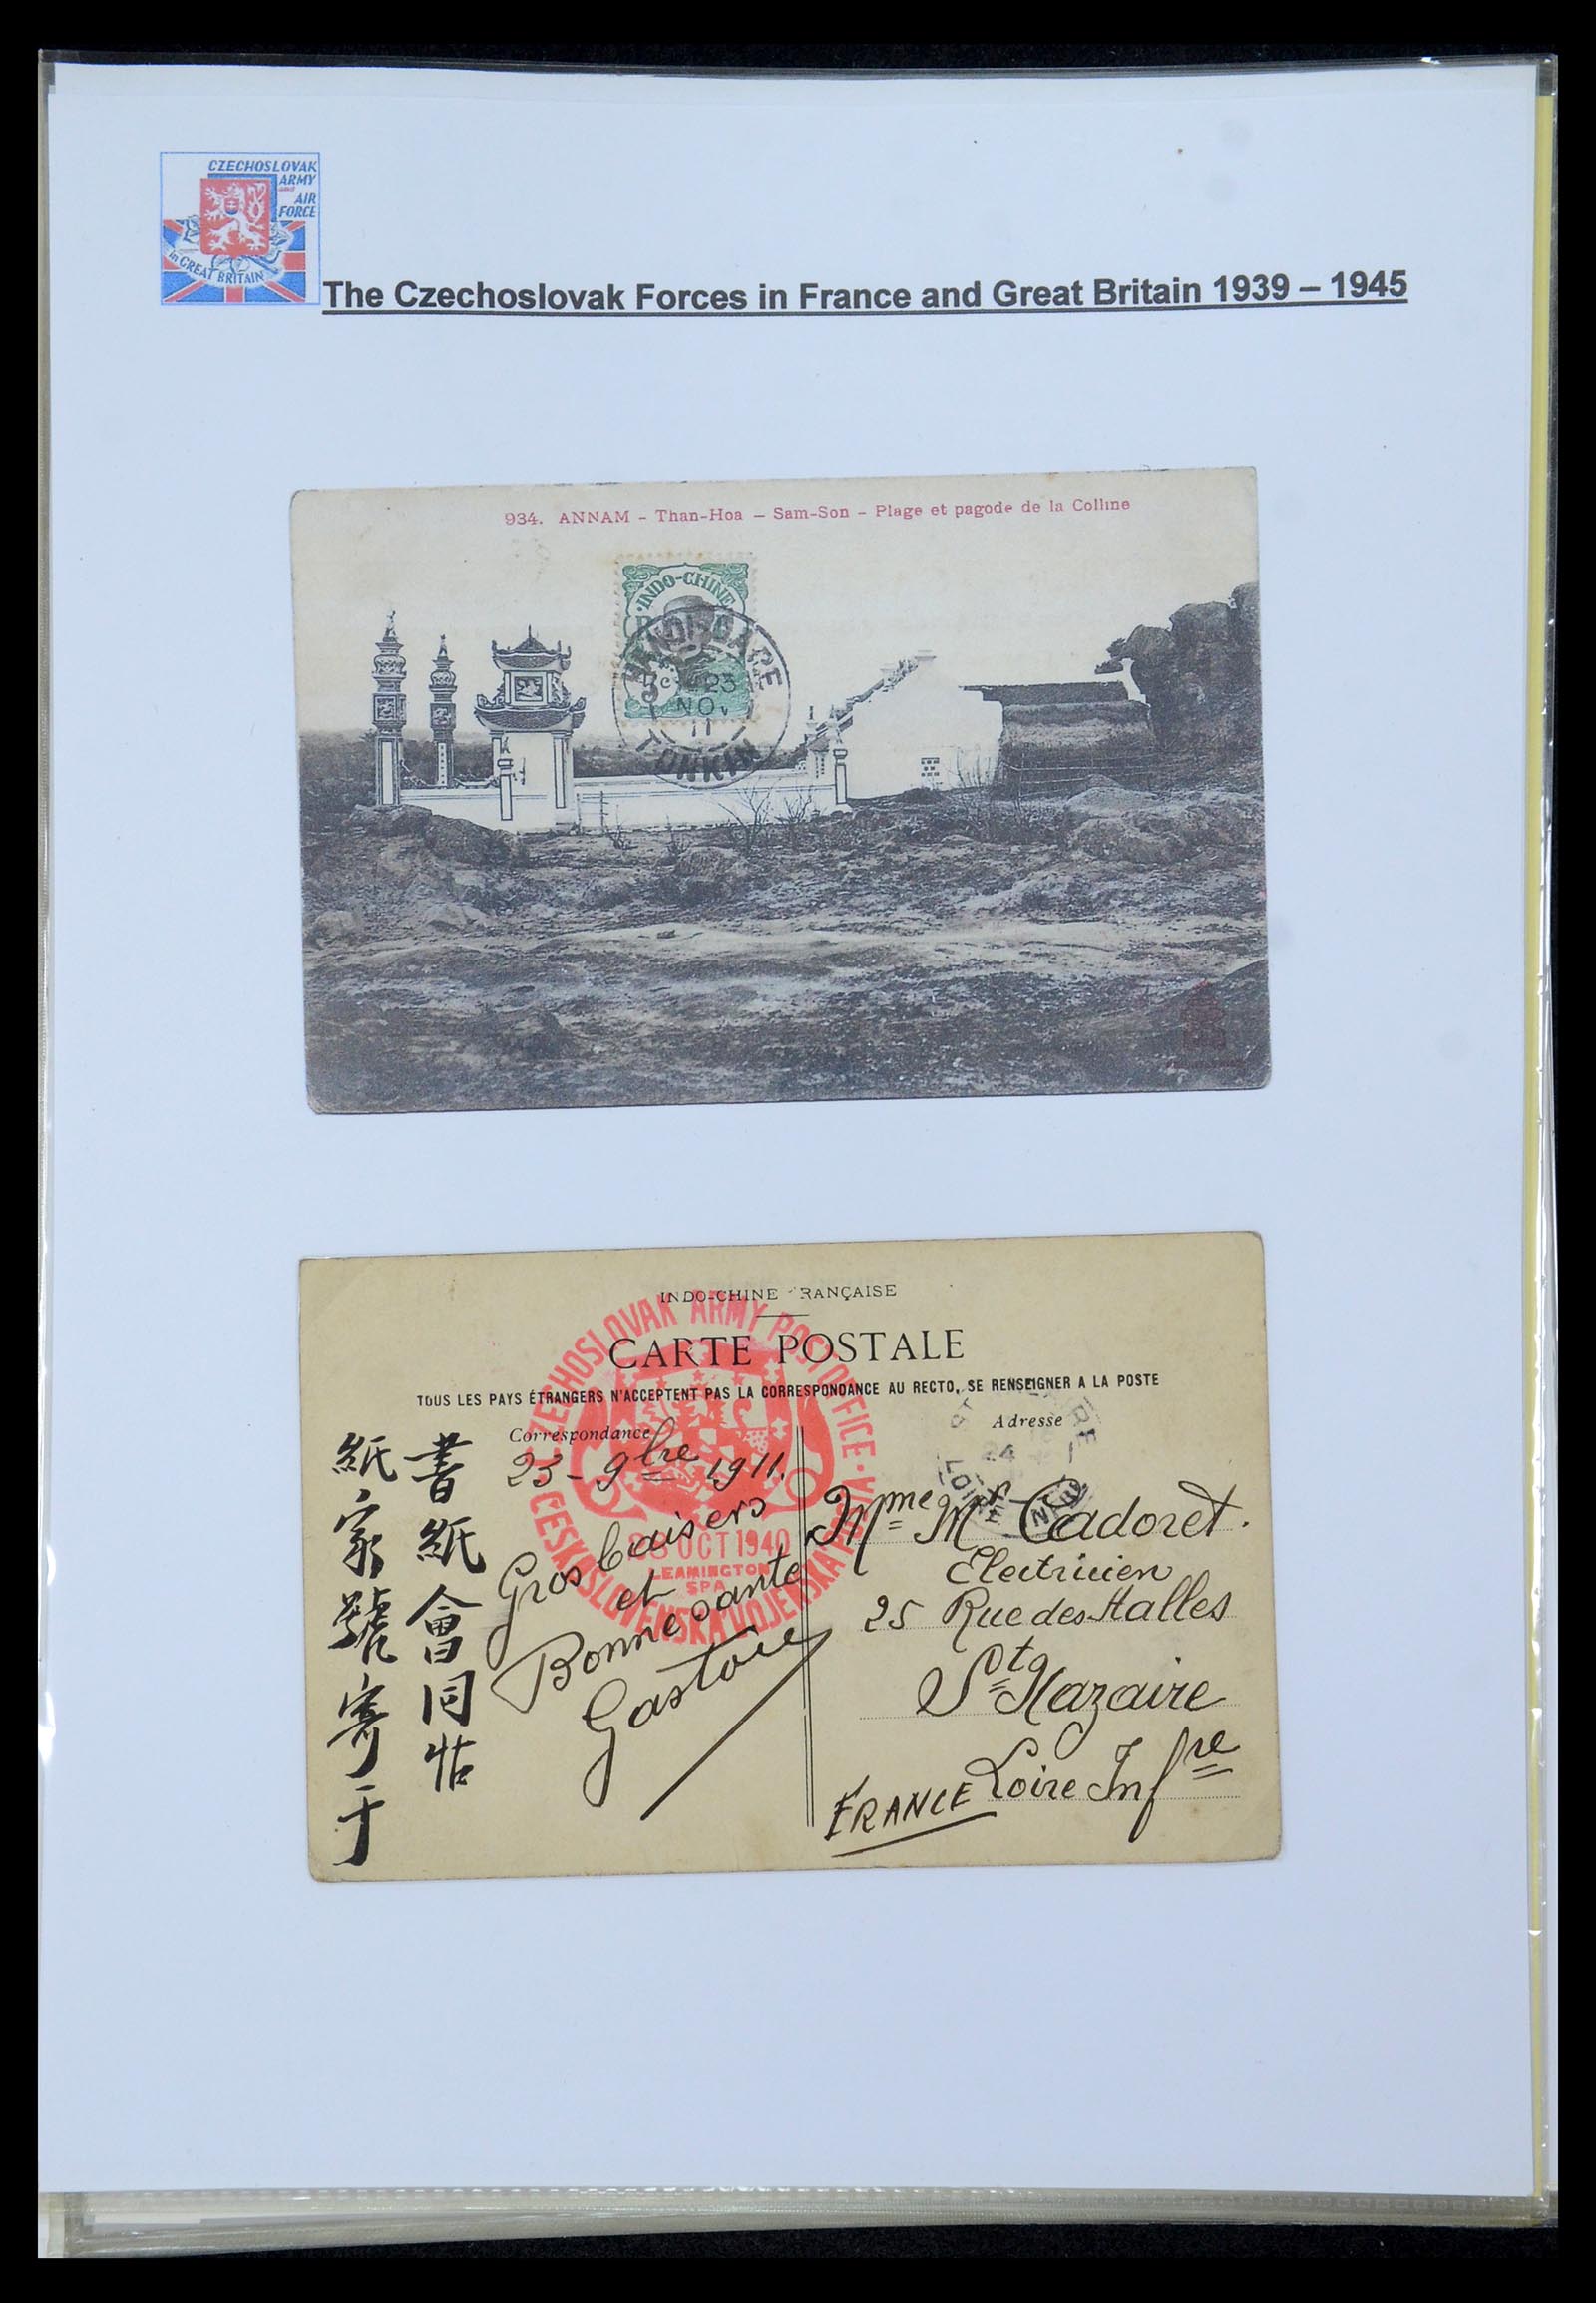 CZECHOSLOVAK
ARMY
and
AIR
FORCE
in GREAT BRITAIN
The Czechoslovak Forces in France and Great Britain 1939 – 1945
934. ANNAM - Than-Hoa - Sam-Son - Plage et pagode de la Colline
INDO-CHINE
23
NOV
11
TONKIN
INDO-CHINE FRANÇAISE
CARTE POSTALE
TOUS LES PAYS ÉTRANGERS N'ACCEPTENT PAS LA CORRESPONDANCE AU RECTO, SE RENSEIGNER A LA POSTE
Correspondance
Adresse
CZECHOSLOVAK ARMY POST OFFICE
28 OCT 1940
LEAMINGTON
SPA
ČESKOSLOVENSKÁ VOJENSKÁ POŠTA
23 - 9bre 1911.
Gros baisers
et
Bonne santé
書紙會同
紙家號寄于
Mme Mx Cadoret.
Electricien
25 Rue des Halles
St Nazaire
Loire Infre
FRANCE